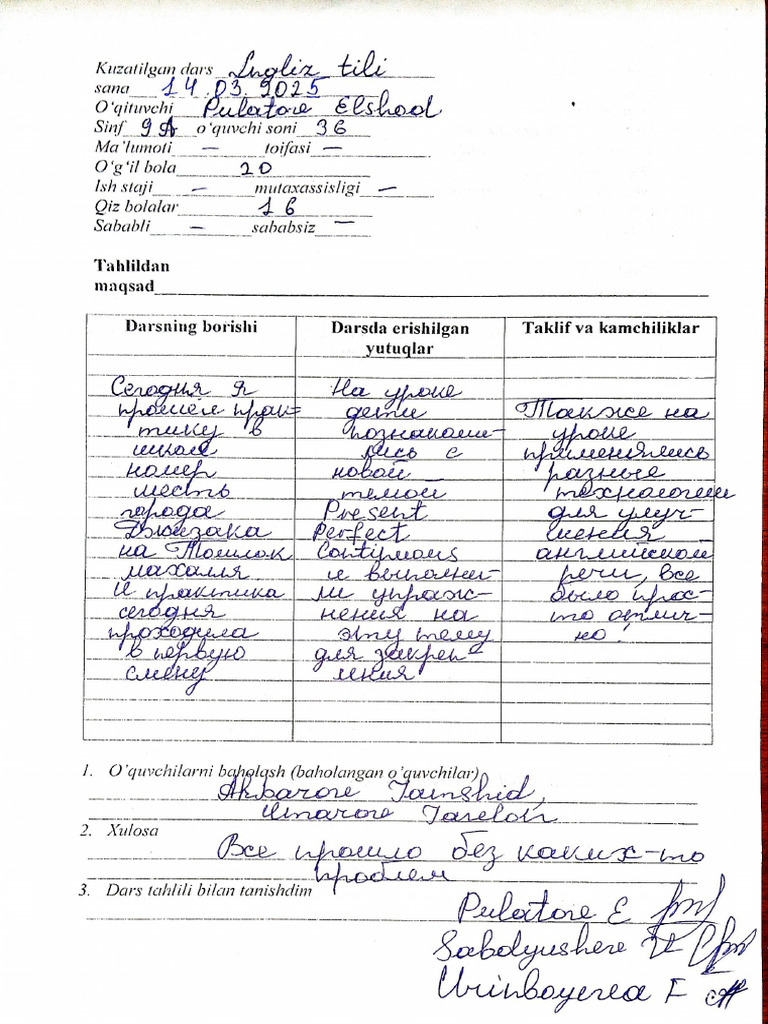 Kuzatilgan dars Ingliz tili
sana 14.03.2025
O'qituvchi Pulatove Elshod
Sinf 9A o'quvchi soni 36
Ma'lumoti – toifasi –
O'g'il bola 20
Ish staji – mutaxassisligi –
Qiz bolalar 16
Sababli – sababsiz –
Tahlildan
maqsad
Darsning borishi
Сегодня я
прошёл прак-
тику в
школе
номер
шесть
города
Джизака
на Тошлок
махалля
И практика
сегодня
проходила
в первую
смену
Darsda erishilgan
yutuqlar
На уроке
дети
познакоми-
лись с
новой
темой
Present
Perfect
Continuous
и выполни-
ли упраж-
нения на
эту тему
для закреп-
ления
Taklif va kamchiliklar
Также на
уроке
применялись
разные
технологии
для улуч-
шения
английской
речи, все
было прос-
то отлич-
но
1. O'quvchilarni baholash (baholangan o'quvchilar)
Akbarove
2. Xulosa
Все прошло без каких-то
проблем
3. Dars tahlili bilan tanishdim
Pulatove E